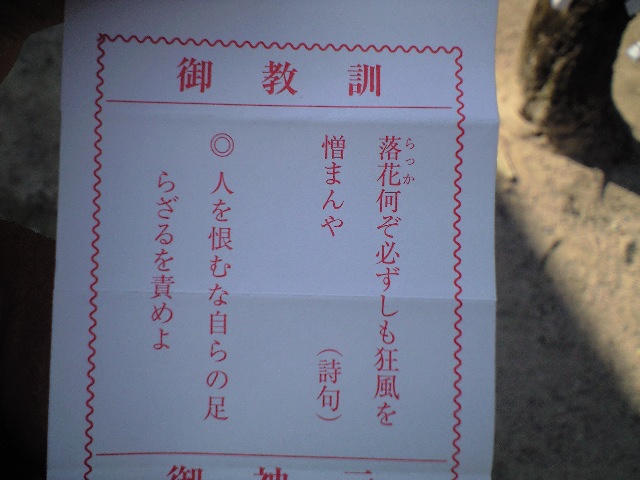 御教訓
落花何ぞ必ずしも狂風を
らっか
憎まんや (詩句)
◎人を恨むな自らの足
らざるを責めよ
御神示